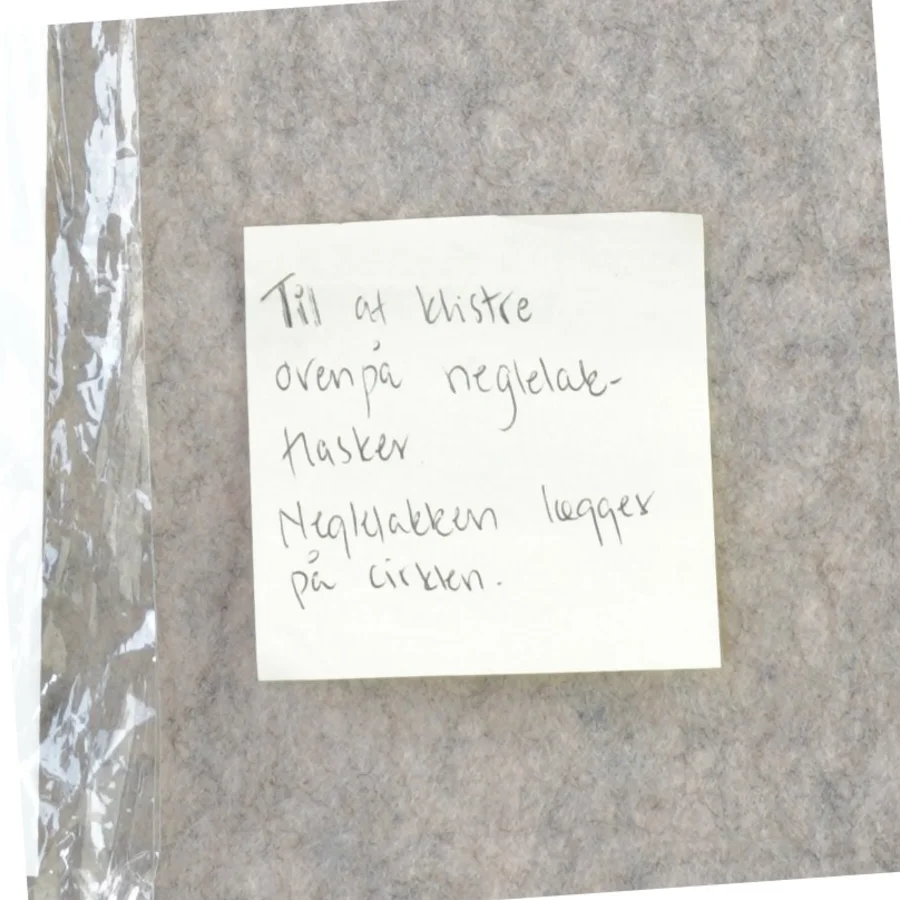 Til at klistre
ovenpå neglelak-
flasker
Neglelakken lægges
på cirklen.